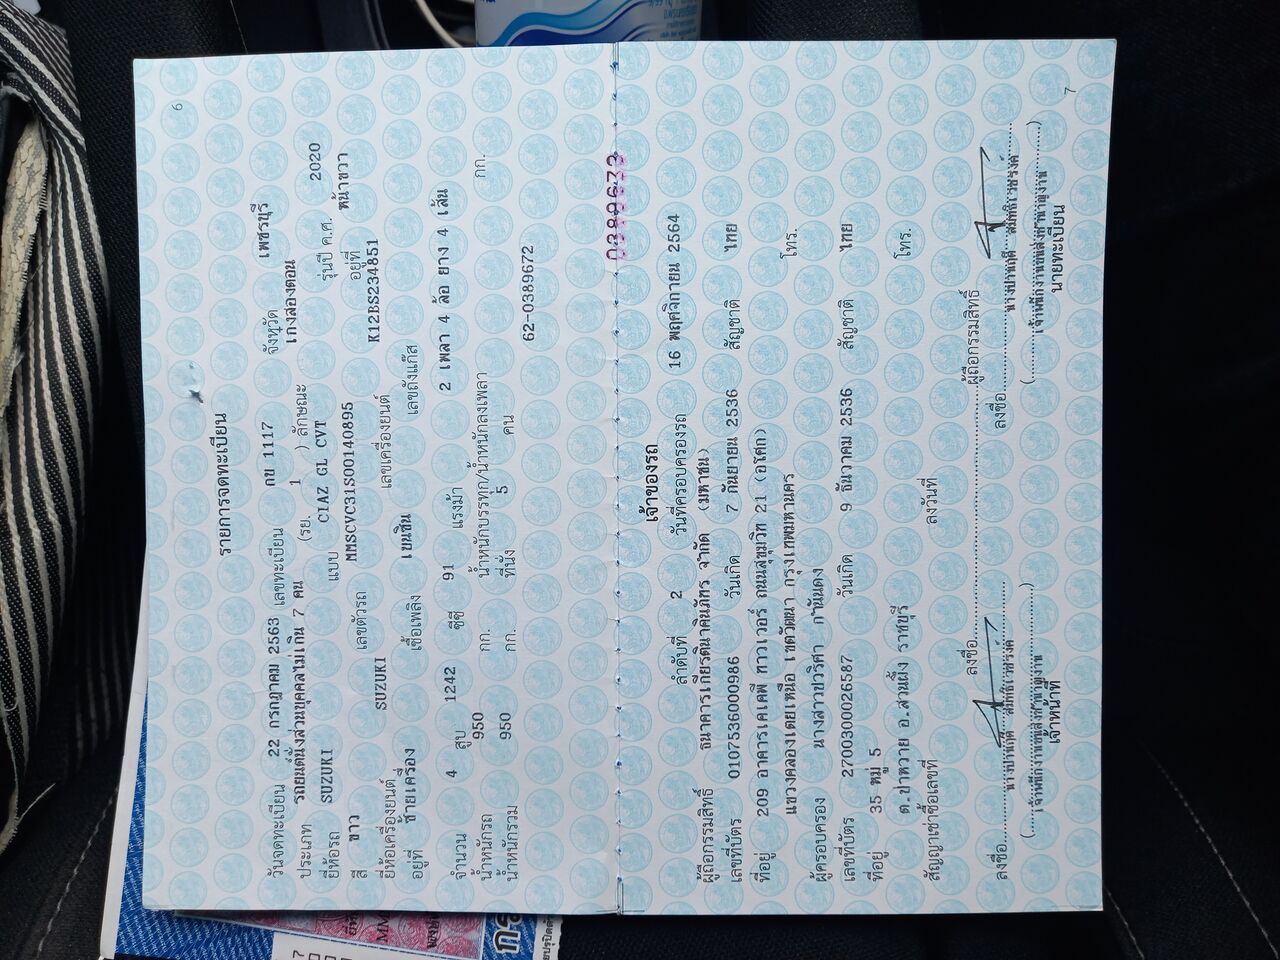 6
รายการจดทะเบียน
วันจดทะเบียน 22 กรกฎาคม 2563 เลขทะเบียน กข 1117 จังหวัด เพชรบุรี
ประเภท รถยนต์นั่งส่วนบุคคลไม่เกิน 7 คน (รย. 1 ) ลักษณะ เก๋งสองตอน
ยี่ห้อรถ SUZUKI แบบ CIAZ GL CVT รุ่นปี ค.ศ. 2020
สี ขาว เลขตัวรถ MMSCVC31S00140895 อยู่ที่ หน้าขวา
ยี่ห้อเครื่องยนต์ SUZUKI เลขเครื่องยนต์ K12BS234851
อยู่ที่ ซ้ายเครื่อง เชื้อเพลิง เบนซิน เลขถังแก๊ส
จำนวน 4 สูบ 1242 ซีซี 91 แรงม้า 2 เพลา 4 ล้อ ยาง 4 เส้น
น้ำหนักรถ 950 กก. น้ำหนักบรรทุก/น้ำหนักลงเพลา กก.
น้ำหนักรวม 950 กก. ที่นั่ง 5 คน
62-0389672
เจ้าของรถ
ลำดับที่ 2 วันที่ครอบครองรถ 16 พฤศจิกายน 2564
ผู้ถือกรรมสิทธิ์ ธนาคารเกียรตินาคินภัทร จำกัด (มหาชน)
เลขที่บัตร 0107536000986 วันเกิด 7 กันยายน 2536 สัญชาติ ไทย
ที่อยู่ 209 อาคารเคเคพี ทาวเวอร์ ถนนสุขุมวิท 21 (อโศก)
แขวงคลองเตยเหนือ เขตวัฒนา กรุงเทพมหานคร โทร.
ผู้ครอบครอง นางสาวปวริศา กำนันดง
เลขที่บัตร 2700300026587 วันเกิด 9 ธันวาคม 2536 สัญชาติ ไทย
ที่อยู่ 35 หมู่ 5
ต.ป่าหวาย อ.สวนผึ้ง ราชบุรี โทร.
สัญญาเช่าซื้อเลขที่ ลงวันที่
ลงชื่อ ผู้ถือกรรมสิทธิ์
ลงชื่อ ลงชื่อ
เจ้าหน้าที่ นายทะเบียน
7